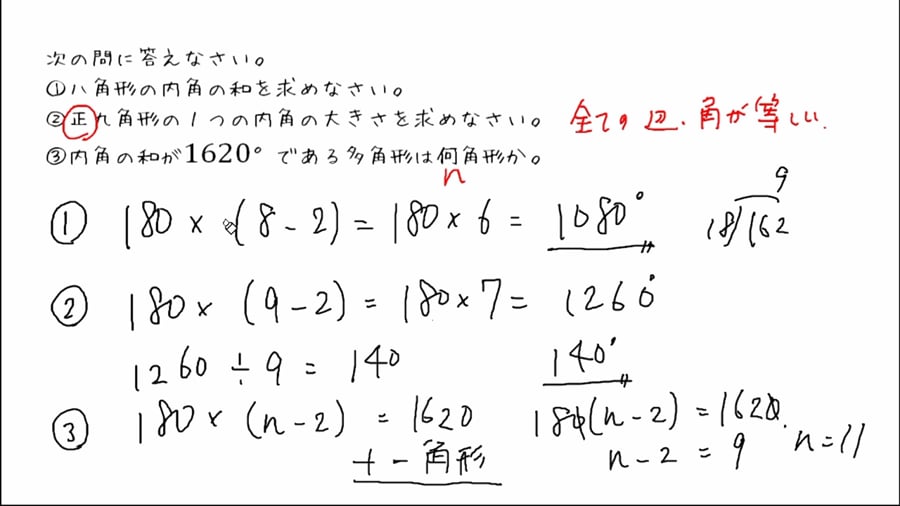 次の問に答えなさい。
①八角形の内角の和を求めなさい。
②正九角形の1つの内角の大きさを求めなさい。 全ての辺、角が等しい.
③内角の和が1620°である多角形は何角形か。
n
① 180 × (8 - 2) = 180 × 6 = 1080°
9
18)162
② 180 × (9 - 2) = 180 × 7 = 1260°
1260 ÷ 9 = 140 140°
③ 180 × (n - 2) = 1620 180(n - 2) = 1620
n - 2 = 9 n = 11
十一角形